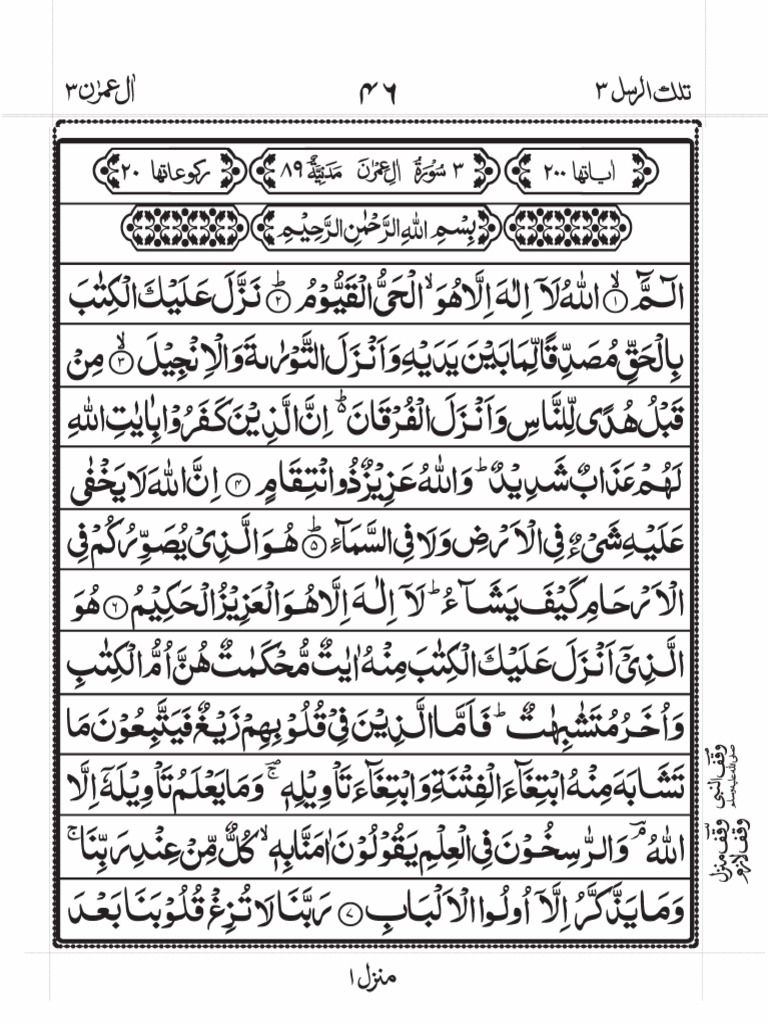 تلك الرسل ٣
۴۶
اٰل عمرٰن ٣
اٰیاتها ٢٠٠
٣ سُوْرَةُ اٰلِ عِمْرٰنَ مَدَنِیَّةٌ ٨٩
رکوعاتها ٢٠
بِسْمِ اللهِ الرَّحْمٰنِ الرَّحِیْمِ
الٓمَّٓ ۙ﴿١﴾ اللهُ لَاۤ اِلٰهَ اِلَّا هُوَ ۙ الْحَیُّ الْقَیُّوْمُ ؕ﴿٢﴾ نَزَّلَ عَلَیْكَ الْكِتٰبَ
بِالْحَقِّ مُصَدِّقًا لِّمَا بَیْنَ یَدَیْهِ وَاَنْزَلَ التَّوْرٰىةَ وَالْاِنْجِیْلَ ۙ﴿٣﴾ مِنْ
قَبْلُ هُدًی لِّلنَّاسِ وَاَنْزَلَ الْفُرْقَانَ ؕ۬ اِنَّ الَّذِیْنَ كَفَرُوْا بِاٰیٰتِ اللهِ
لَهُمْ عَذَابٌ شَدِیْدٌ ؕ وَاللهُ عَزِیْزٌ ذُو انْتِقَامٍ ﴿۴﴾ اِنَّ اللهَ لَا یَخْفٰی
عَلَیْهِ شَیْءٌ فِی الْاَرْضِ وَلَا فِی السَّمَآءِ ؕ﴿۵﴾ هُوَ الَّذِیْ یُصَوِّرُكُمْ فِی
الْاَرْحَامِ كَیْفَ یَشَآءُ ؕ لَاۤ اِلٰهَ اِلَّا هُوَ الْعَزِیْزُ الْحَكِیْمُ ﴿۶﴾ هُوَ
الَّذِیْۤ اَنْزَلَ عَلَیْكَ الْكِتٰبَ مِنْهُ اٰیٰتٌ مُّحْكَمٰتٌ هُنَّ اُمُّ الْكِتٰبِ
وَاُخَرُ مُتَشٰبِهٰتٌ ؕ فَاَمَّا الَّذِیْنَ فِیْ قُلُوْبِهِمْ زَیْغٌ فَیَتَّبِعُوْنَ مَا
تَشَابَهَ مِنْهُ ابْتِغَآءَ الْفِتْنَةِ وَابْتِغَآءَ تَاْوِیْلِهٖ ۚ وَمَا یَعْلَمُ تَاْوِیْلَهٗۤ اِلَّا
اللهُ ۘ وَالرّٰسِخُوْنَ فِی الْعِلْمِ یَقُوْلُوْنَ اٰمَنَّا بِهٖ ۙ كُلٌّ مِّنْ عِنْدِ رَبِّنَا ۚ
وَمَا یَذَّكَّرُ اِلَّاۤ اُولُوا الْاَلْبَابِ ﴿۷﴾ رَبَّنَا لَا تُزِغْ قُلُوْبَنَا بَعْدَ
وقف النبی صلی الله علیه وسلم
وقف منزل
وقف لازم
منزل ١